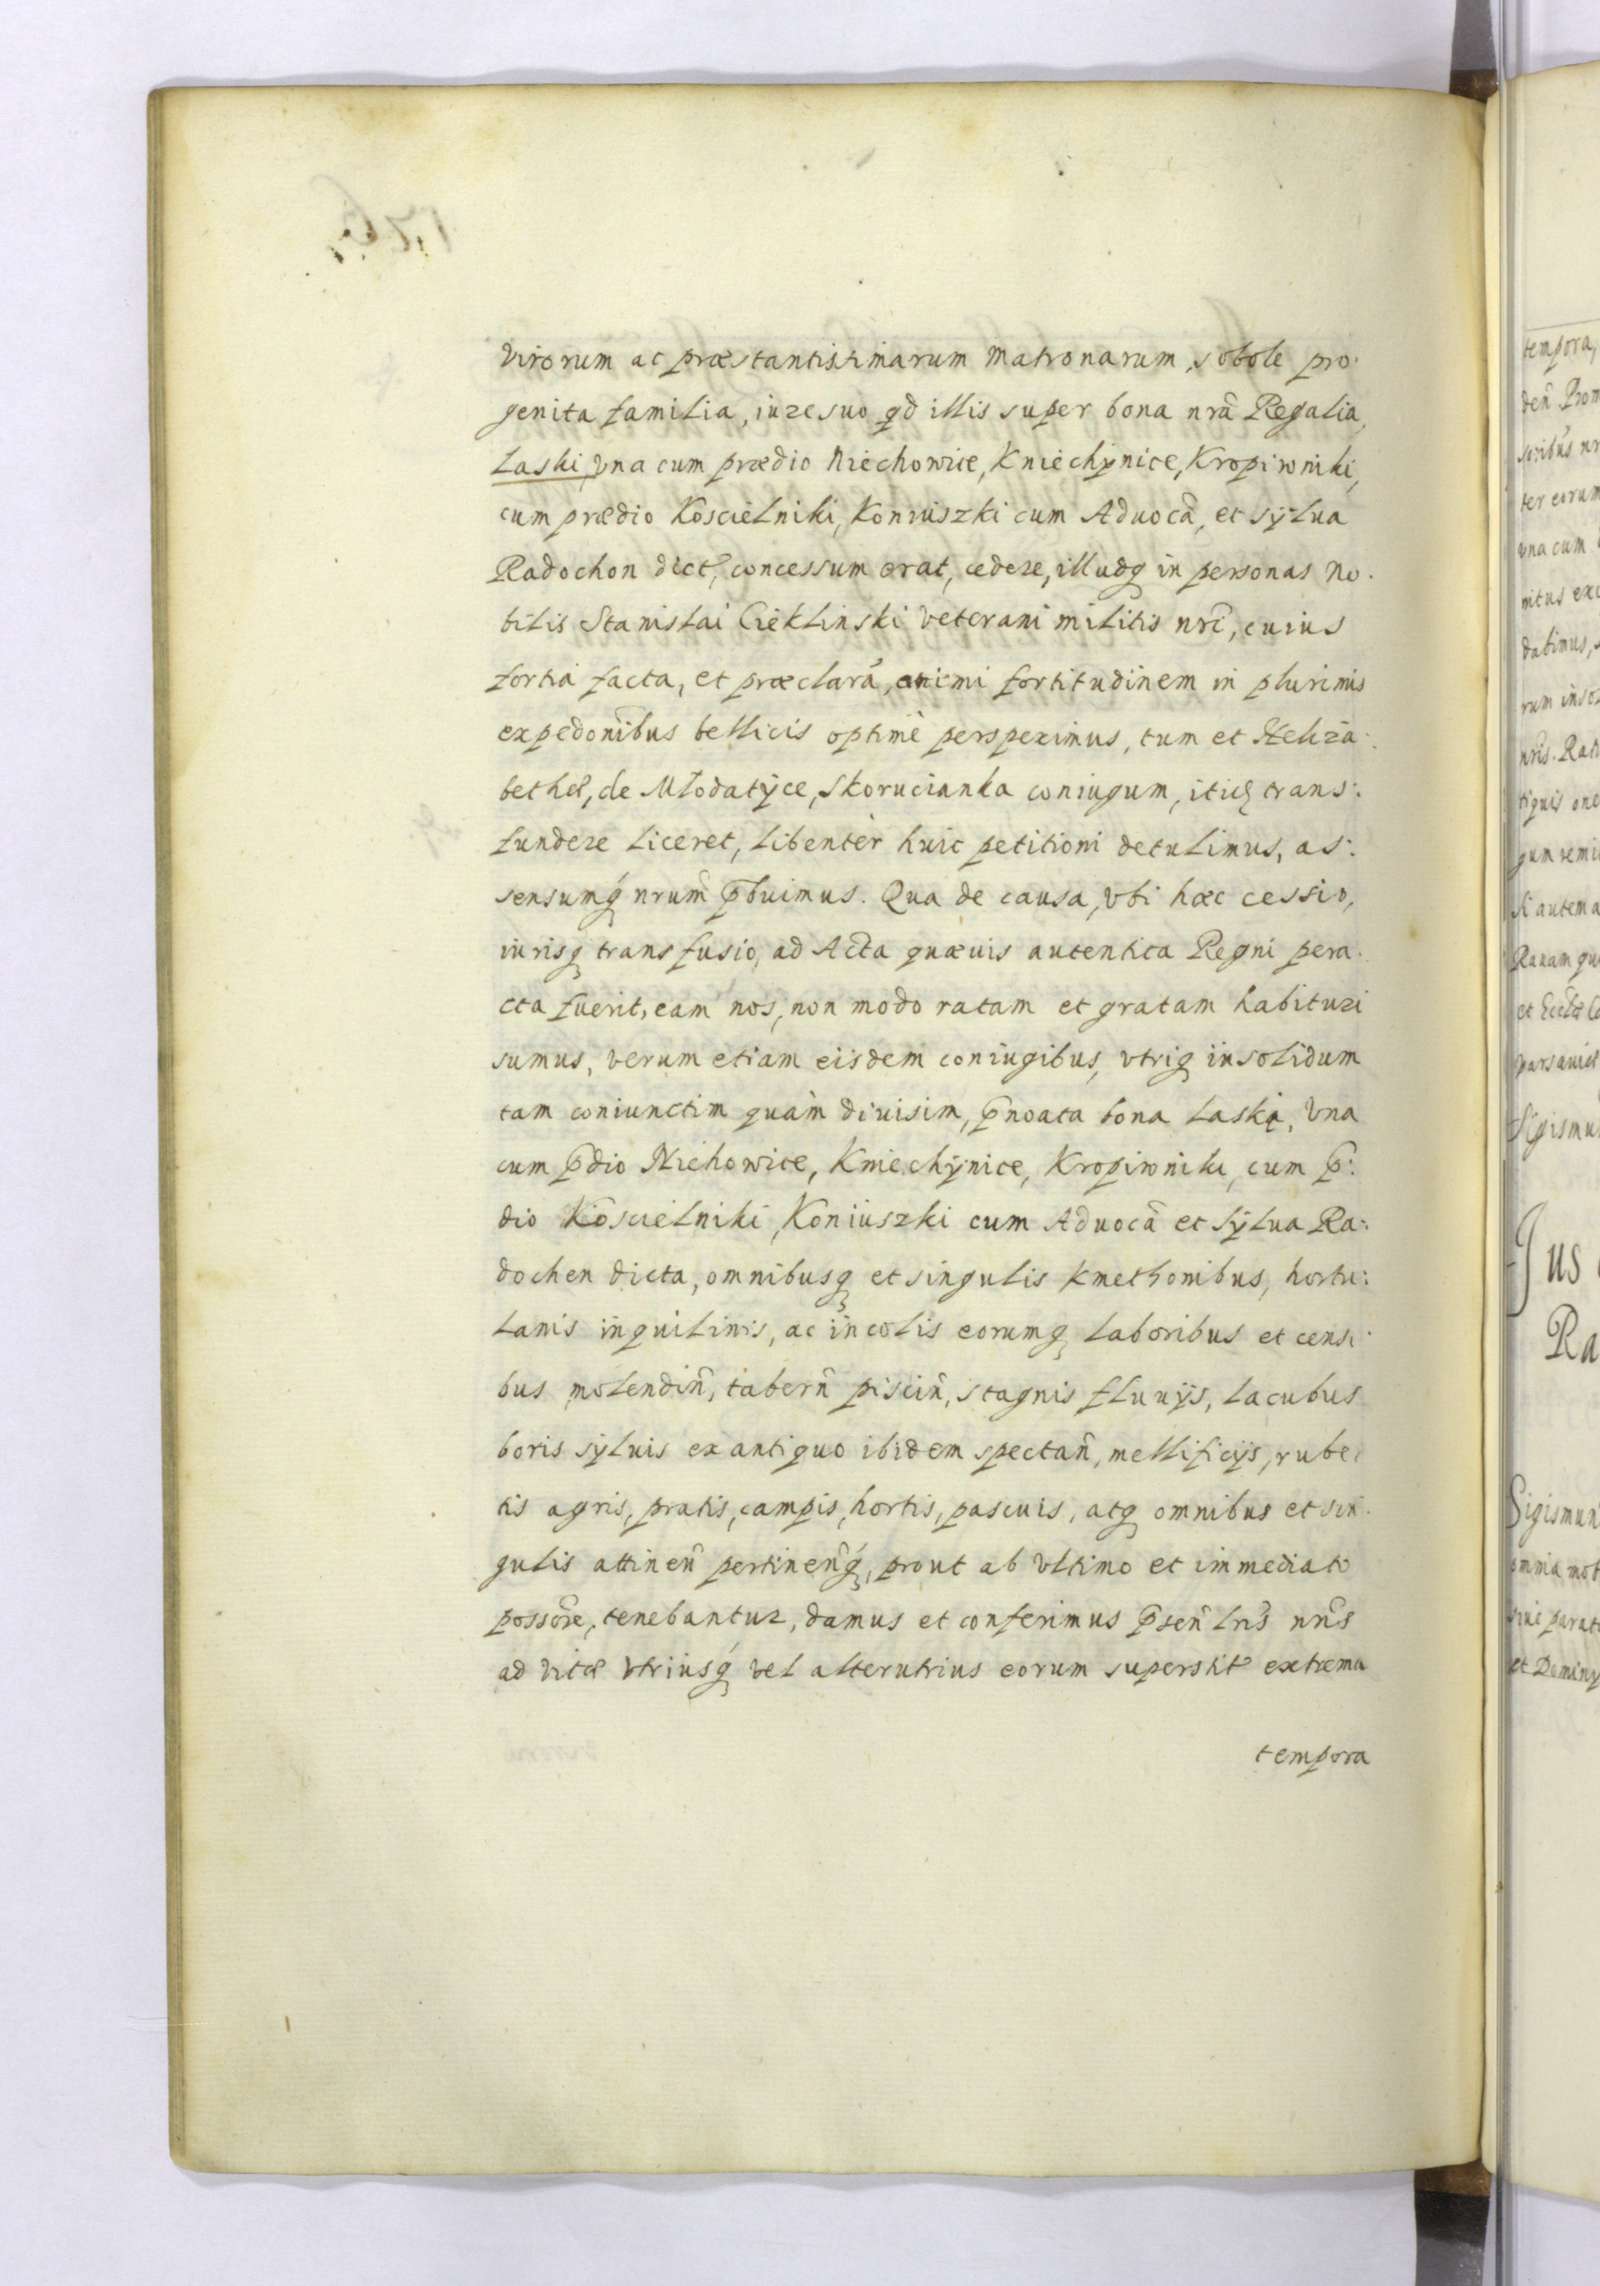 virorum ac præstantissimarum matronarum, sobole pro:
genita familia, iure suo qd illis super bona nrã Regalia,
Laski, vna cum prædio Niechowice, Kniechynice, Kropiwniki,
cum prædio Koscielniki, Koniuszki cum Aduocã, et sylua
Radochon dict, concessum erat, cedere, illudq in personas No:
bilis Stanislai Cieklinski veterani militis nrĩ, cuius
fortia facta, et præclarã, animi fortitudinem in plurimis
expedonibus bellicis optimè perspeximus, tum et Heliza:
bethæ, de Młodatyce, Skorucianka coniugum, itiq trans:
fundere liceret, libentèr huic petitioni detulimus, as:
sensumq́ nrum̃ p̃buimus. Qua de causa, vbi hæc cessio,
iurisq transfusio, ad Acta quæuis autentica Regni pera:
cta fuerit, eam nos, non modo ratam et gratam habituri
sumus, verum etiam eisdem coniugibus, vtriq in solidum
tam coniunctim quàm diuisim, p̃noata bona Laski, vna
cum p̃dio Niehowice, Kniechynice, Kropiwniki, cum p̃:
dio Koscielniki, Koniuszki cum Aduocã et sylua Ra:
dochen dicta, omnibusq et singulis kmethonibus, hortu:
lanis inquilinis, ac incolis eorumq laboribus et censi:
bus molendiñ, taberñ pisciñ, stagnis fluuijs, lacubus
boris syluis ex antiquo ibidem spectañ, mellificijs, rube:
tis agris, pratis, campis, hortis, pascuis, atq omnibus et sin:
gulis attineñ pertineñq́, prout ab vltimo et immediato
possõre, tenebantur, damus et conferimus p̃señ lrĩs nrĩs
ad vitæ vtriusq́ vel alterutrius eorum superstit extrema
tempora
tempora,
vna cum
datimus,
si autem a
Sigismu
Jus
Ra
Sigismun
omnia mot